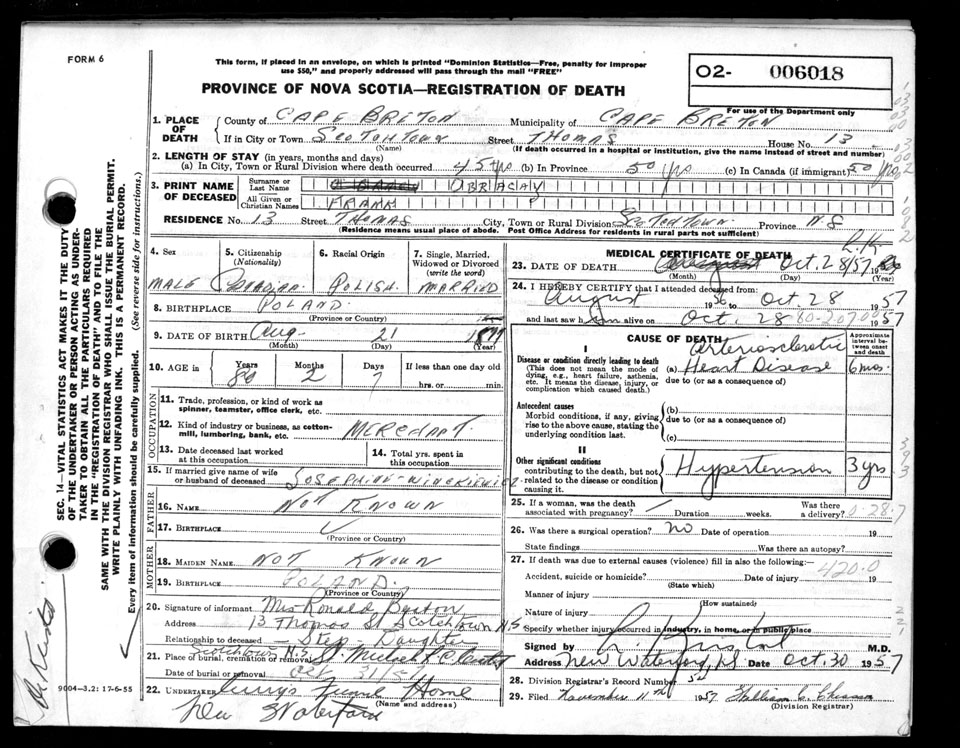 FORM 6
This form, if placed in an envelope, on which is printed "Dominion Statistics—Free, penalty for improper
use $50," and properly addressed will pass through the mail "FREE"
PROVINCE OF NOVA SCOTIA—REGISTRATION OF DEATH
O2- 006018
For use of the Department only
1. PLACE OF DEATH
County of CAPE BRETON Municipality of CAPE BRETON
If in City or Town SCOTCHTOWN Street THOMAS House No. 13
(Name) (If death occurred in a hospital or institution, give the name instead of street and number)
2. LENGTH OF STAY (in years, months and days)
(a) In City, Town or Rural Division where death occurred 45 yrs (b) In Province 50 yrs (c) In Canada (if immigrant) 50 yrs
3. PRINT NAME OF DECEASED
Surname or Last Name OBRACAY
All Given or Christian Names FRANK
RESIDENCE No. 13 Street THOMAS City, Town or Rural Division SCOTCHTOWN Province N.S
(Residence means usual place of abode. Post Office Address for residents in rural parts not sufficient)
4. Sex
MALE
5. Citizenship (Nationality)
Canadian
6. Racial Origin
POLISH
7. Single, Married, Widowed or Divorced (write the word)
MARRIED
8. BIRTHPLACE POLAND
(Province or Country)
9. DATE OF BIRTH Aug 21
(Month) (Day) (Year)
10. AGE in Years 80 Months 2 Days 7 If less than one day old
hrs. or min.
OCCUPATION
11. Trade, profession, or kind of work as spinner, teamster, office clerk, etc.
12. Kind of industry or business, as cotton-mill, lumbering, bank, etc. MERCHANT.
13. Date deceased last worked at this occupation
14. Total yrs. spent in this occupation
15. If married give name of wife or husband of deceased JOSEPHINE
FATHER
16. Name NOT KNOWN
17. Birthplace
(Province or Country)
MOTHER
18. Maiden Name NOT KNOWN
19. Birthplace POLAND.
20. Signature of informant Mrs Ronald
Address 13 Thomas St Scotchtown N.S
Relationship to deceased Step - Daughter
21. Place of burial, cremation or removal Scotchtown N.S. St Michael R.C.
Date of burial or removal Oct 31/57
22. UNDERTAKER Curry's Funeral Home
(Name and address)
New Waterford
9004-3,2: 17-6-55
MEDICAL CERTIFICATE OF DEATH
R.K.
23. DATE OF DEATH Oct. 28/57 19
(Month) (Day) (Year)
24. I HEREBY CERTIFY that I attended deceased from:
August 1956 to Oct 28 1957
and last saw him alive on Oct. 28 1957
CAUSE OF DEATH
Approximate interval between onset and death
I
Disease or condition directly leading to death
(This does not mean the mode of dying, e.g., heart failure, asthenia, etc. It means the disease, injury, or complication which caused death.)
(a) Arteriosclerotic Heart Disease 6 mos.
due to (or as a consequence of)
Antecedent causes
Morbid conditions, if any, giving rise to the above cause, stating the underlying condition last.
(b)
due to (or as a consequence of)
(c)
II
Other significant conditions contributing to the death, but not related to the disease or condition causing it.
Hypertension 3 yrs
25. If a woman, was the death associated with pregnancy? Duration weeks. Was there a delivery?
26. Was there a surgical operation? NO Date of operation 19
State findings Was there an autopsy?
27. If death was due to external causes (violence) fill in also the following: 420.0
Accident, suicide or homicide? Date of injury 19
(State which)
Manner of injury
(How sustained)
Nature of injury
Specify whether injury occurred in industry, in home, or in public place
Signed by M.D.
Address New Waterford, N.S Date Oct. 30 1957
28. Division Registrar's Record Number
29. Filed November 11th 1957 William C.
(Division Registrar)
SEC. 14—VITAL STATISTICS ACT MAKES IT THE DUTY
OF THE UNDERTAKER OR PERSON ACTING AS UNDER-
TAKER TO OBTAIN ALL THE PARTICULARS REQUIRED
IN THE "REGISTRATION OF DEATH" AND TO FILE THE
SAME WITH THE DIVISION REGISTRAR WHO SHALL ISSUE THE BURIAL PERMIT.
WRITE PLAINLY WITH UNFADING INK. THIS IS A PERMANENT RECORD.
Every item of information should be carefully supplied. (See reverse side for instructions.)